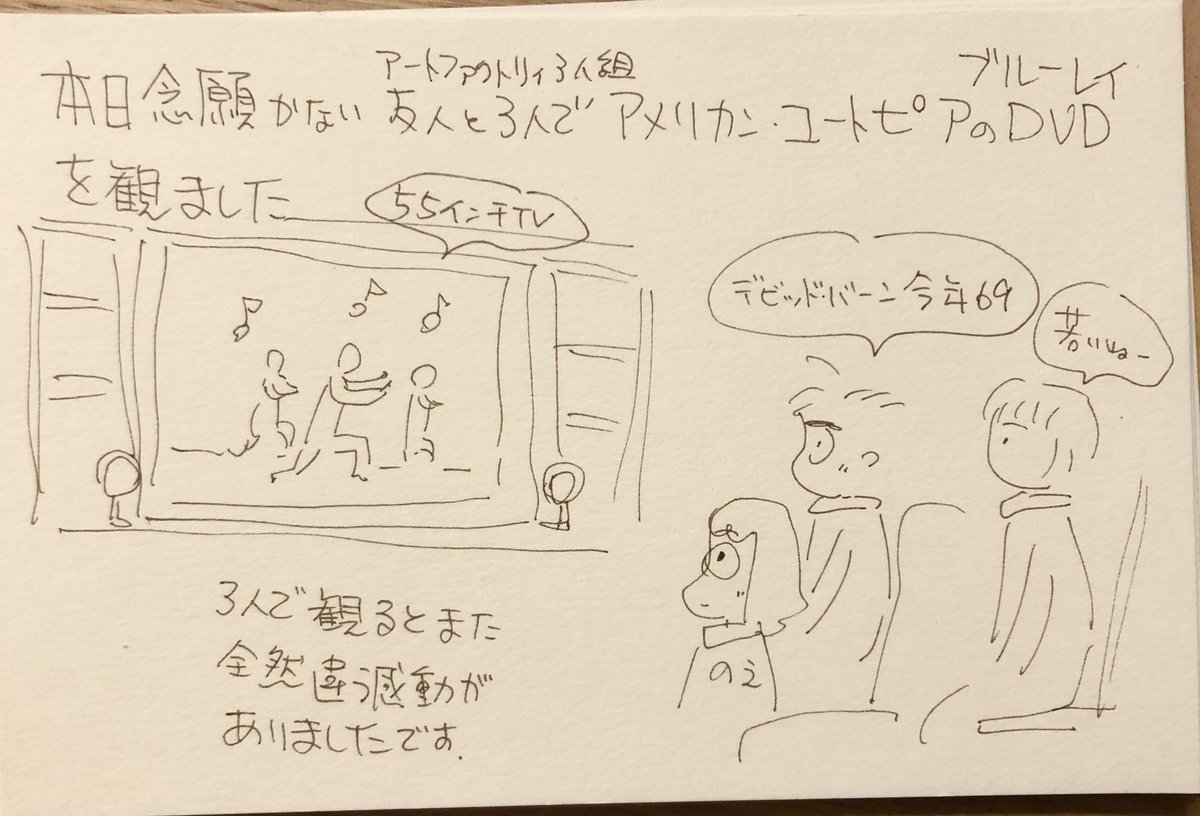 アートファクトリィ3人組
ブルーレイ
本日念願かない 友人と3人で アメリカン・ユートピアのDVD
を観ました
55インチTV
デビッド・バーン今年69
若いねー
のえ
3人で観るとまた
全然違う感動が
ありましたです.